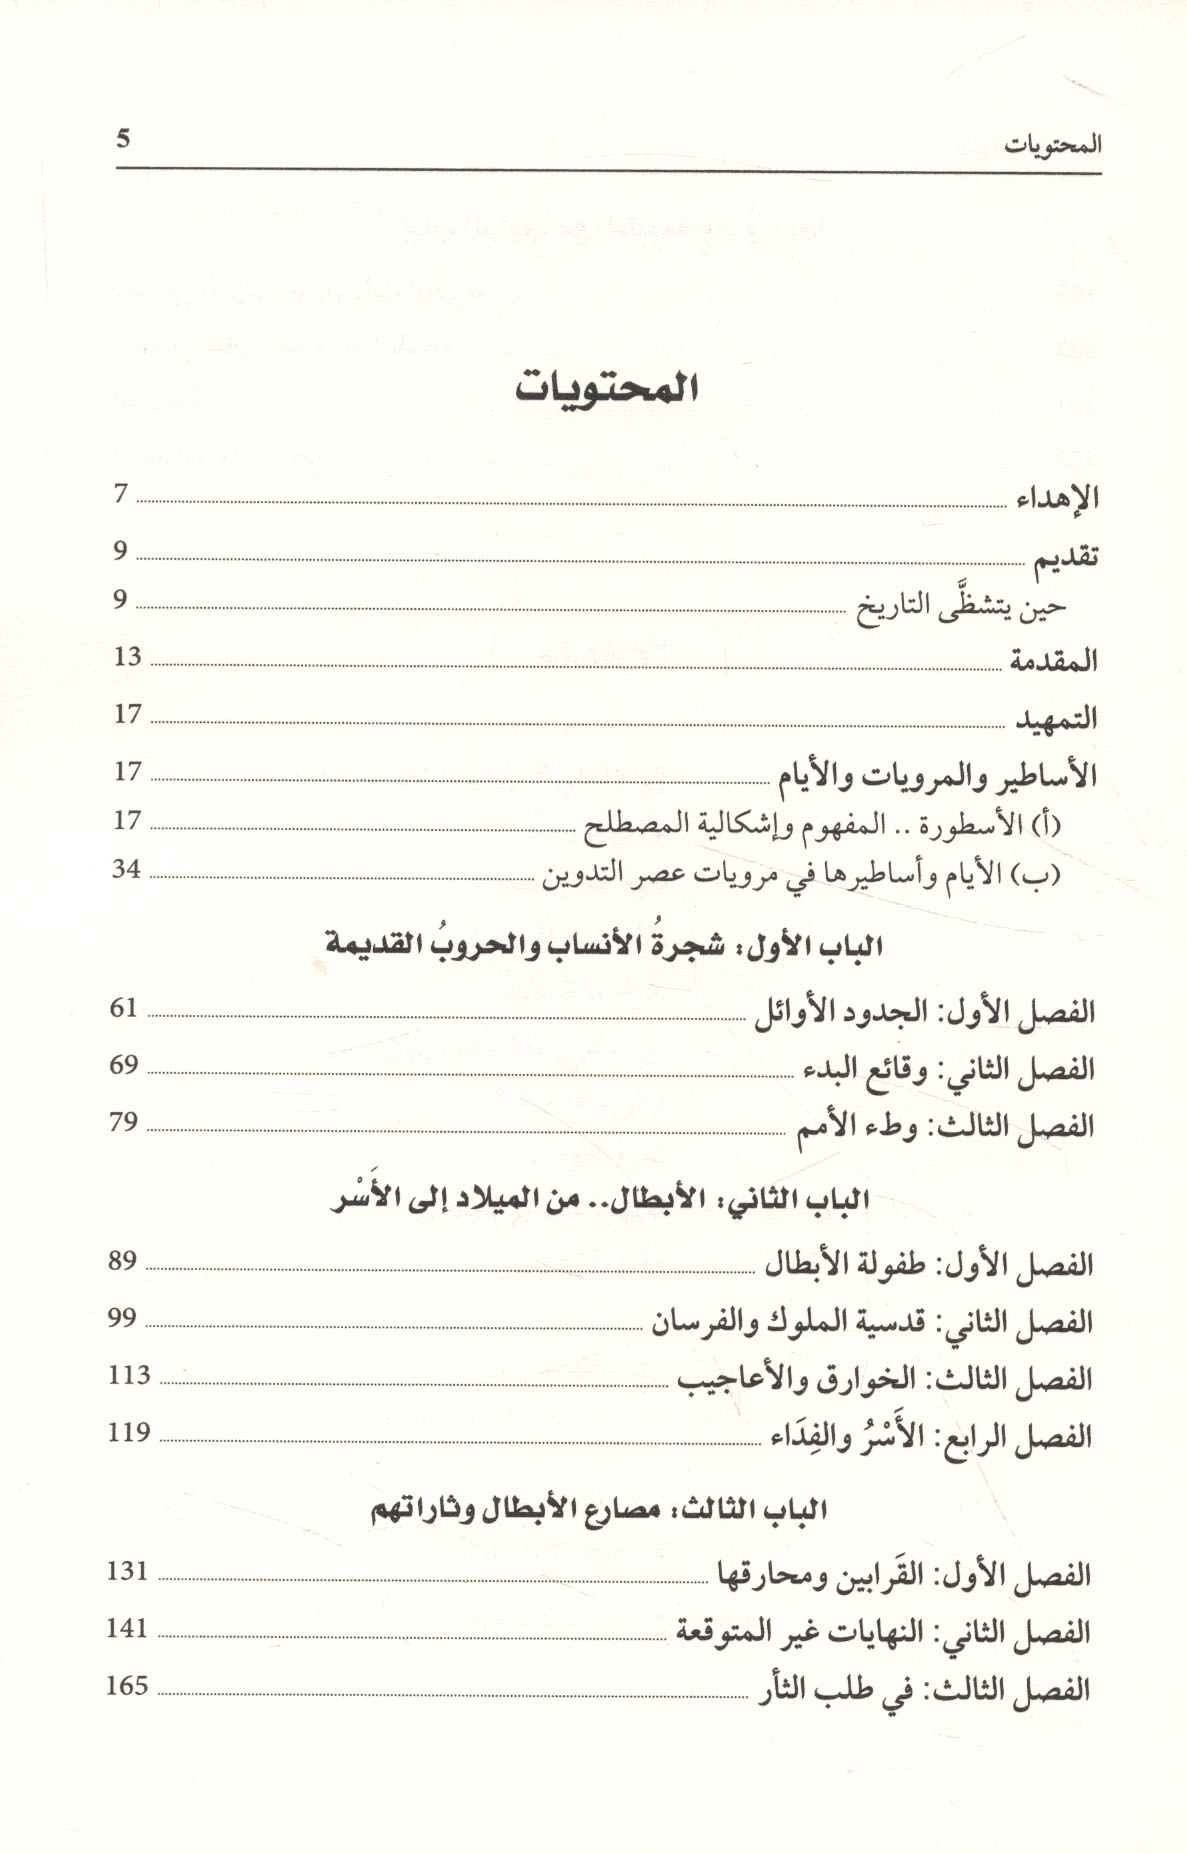 المحتويات 5
المحتويات
الإهداء 7
تقديم 9
حين يتشظَّى التاريخ 9
المقدمة 13
التمهيد 17
الأساطير والمرويات والأيام 17
(أ) الأسطورة .. المفهوم وإشكالية المصطلح 17
(ب) الأيام وأساطيرها في مرويات عصر التدوين 34
الباب الأول: شجرةُ الأنساب والحروبُ القديمة
الفصل الأول: الجدود الأوائل 61
الفصل الثاني: وقائع البدء 69
الفصل الثالث: وطء الأمم 79
الباب الثاني: الأبطال.. من الميلاد إلى الأَسْر
الفصل الأول: طفولة الأبطال 89
الفصل الثاني: قدسية الملوك والفرسان 99
الفصل الثالث: الخوارق والأعاجيب 113
الفصل الرابع: الأَسْرُ والفِدَاء 119
الباب الثالث: مصارع الأبطال وثاراتهم
الفصل الأول: القَرابين ومحارقها 131
الفصل الثاني: النهايات غير المتوقعة 141
الفصل الثالث: في طلب الثأر 165